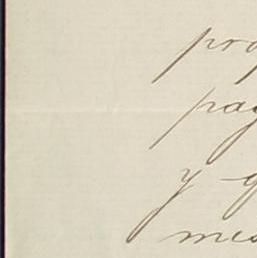 pro
pag
y g
mes